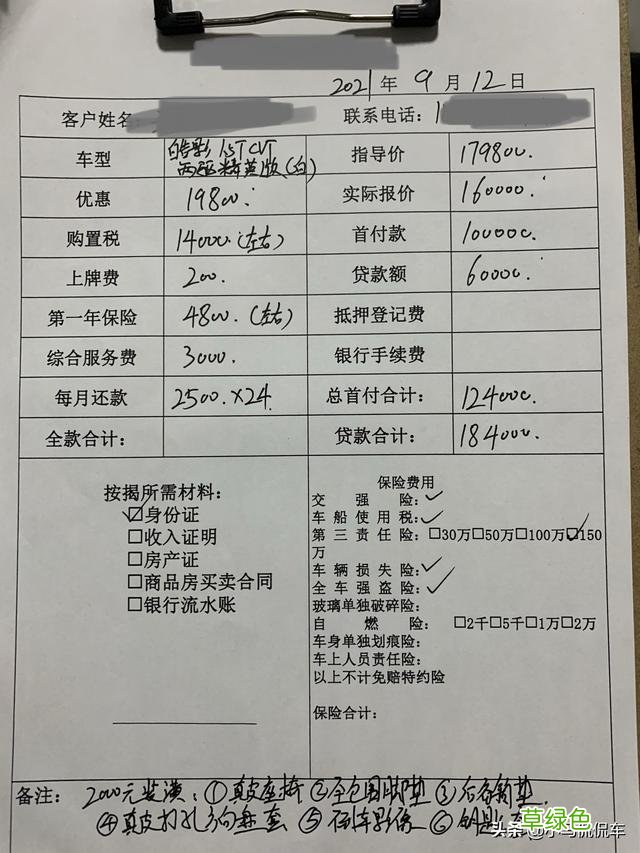 2021年9月12日
客户姓名 联系电话：1
车型 皓影1.5T CVT 指导价 179800.
两驱精英版(白)
优惠 19800. 实际报价 160000.
购置税 14000.(左右) 首付款 100000.
上牌费 200. 贷款额 60000.
第一年保险 4800.(左右) 抵押登记费
综合服务费 3000. 银行手续费
每月还款 2500.×24 总首付合计： 124000.
全款合计： 贷款合计： 184000.
按揭所需材料：
☑身份证
□收入证明
□房产证
□商品房买卖合同
□银行流水账
保险费用
交强险：✓
车船使用税：✓
第三责任险：□30万□50万□100万☑150
万
车辆损失险：✓
全车强盗险：✓
玻璃单独破碎险：
自燃险： □2千□5千□1万□2万
车身单独划痕险：
车上人员责任险：
以上不计免赔特约险
保险合计：
备注： 2000元装潢：①真皮座椅 ②全包围脚垫 ③后备箱垫
④真皮打孔方向盘套 ⑤倒车影像 ⑥钥匙
草绿色
头条@小马侃侃车